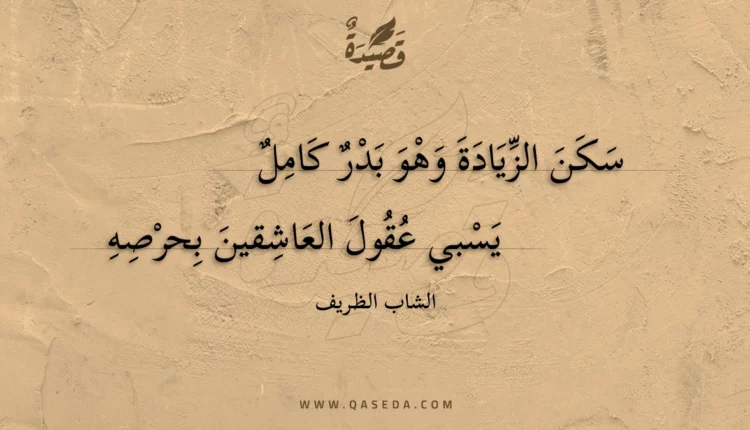 قَصِيْدَةٌ
سَكَنَ الزِّيَادَةَ وَهْوَ بَدْرٌ كَامِلٌ
يَسْبي عُقُولَ العَاشِقينَ بِحرْصِهِ
الشاب الظريف
WWW.QASEDA.COM